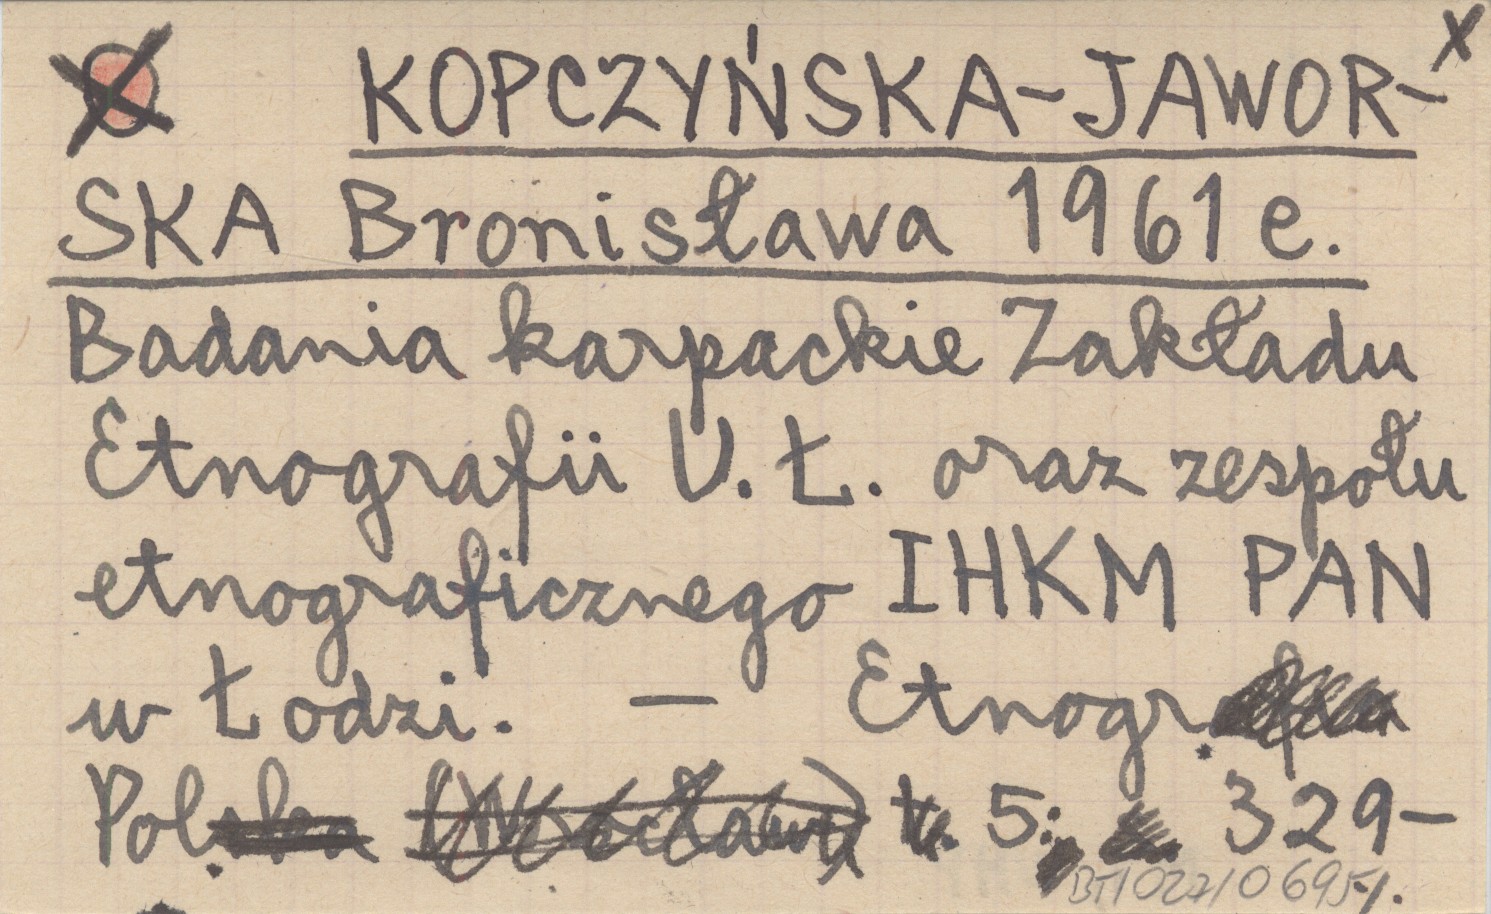 KOPCZYŃSKA-JAWOR- x
SKA Bronisława 1961 e.
Badania karpackie Zakładu
Etnografii U.Ł. oraz zespołu
etnograficznego IHKM PAN
w Łodzi. — Etnogr.
Pol. 5: 329-